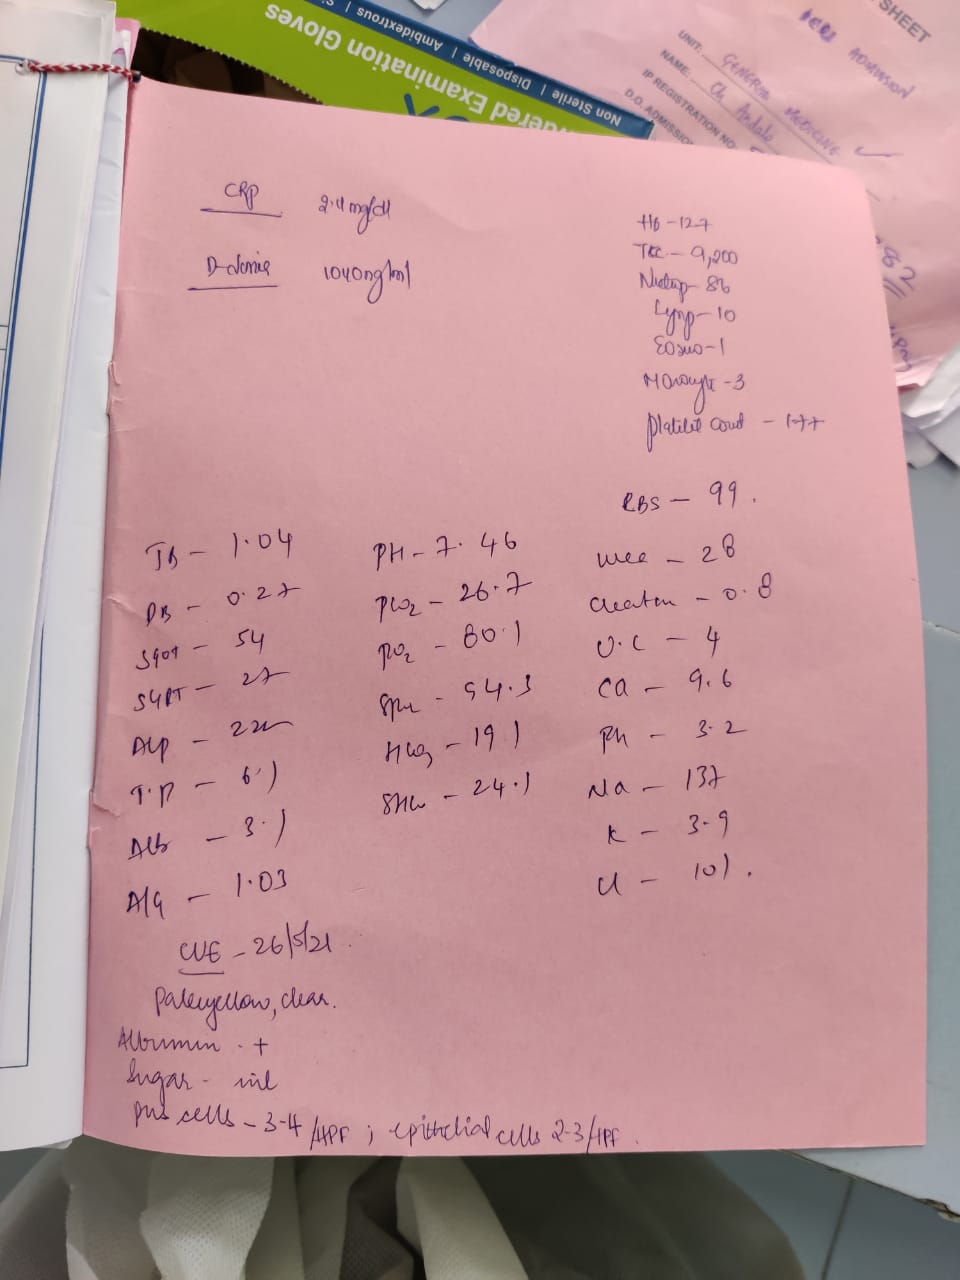 Non Sterile | Disposable | Ambidextrous |
Powdered Examination Gloves
SHEET
ADMISSION
UNIT: GENERAL MEDICINE
NAME:
IP REGISTRATION NO
D.O. ADMISSION
82
CRP 2.4 mg/dl
D-dimer 1040ng/ml
Hb - 12.7
TLC - 9,200
Neutrop - 86
Lymp - 10
Eosino - 1
Monocyte - 3
Platelet count - 1.77
RBS - 99.
TB - 1.04
DB - 0.27
SGOT - 54
SGPT - 27
ALP -
T.P - 6.1
Alb - 3.1
A/G - 1.03
PH - 7.46
PCO2 - 26.7
PO2 - 80.1
SpO2 - 94.3
HCO3 - 19.1
- 24.1
Urea - 28
Creatin - 0.8
U.C - 4
Ca - 9.6
Ph - 3.2
Na - 137
K - 3.9
Cl - 101.
CUE - 26/5/21
Pale yellow, clear.
Albumin - +
Sugar - nil
pus cells - 3-4/HPF ; epithelial cells 2-3/HPF.